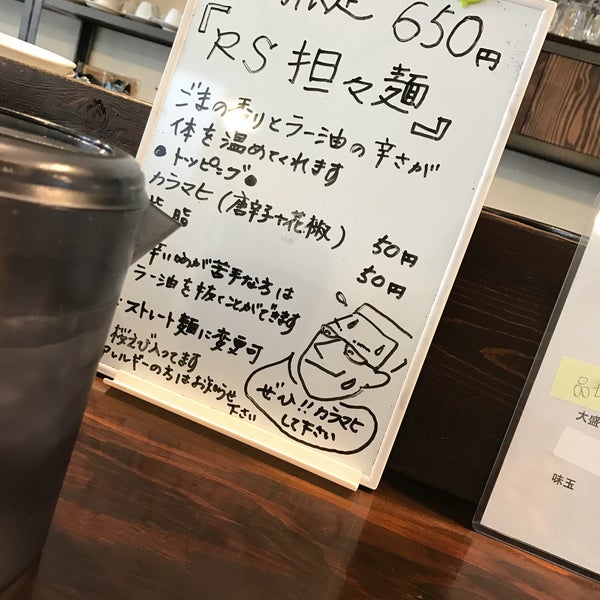 限定 650円
『RS担々麺』
ごまの香りとラー油の辛さが
体を温めてくれます
●トッピング●
カラマヒ(唐辛子+花椒) 50円
背脂 50円
辛いのが苦手な方は
ラー油を抜くことができます
ストレート麺に変更可
桜えび入ってます
アレルギーの方はお知らせ
下さい
ぜひ!!カラマヒ
して下さい
品
大盛
味玉